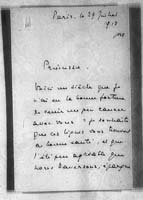 Paris, le 29 Juillet
1913
Princesse,
Voici un siècle que je
n'ai eu la bonne fortune
de venir un peu causer
avec vous. Je souhaite
que ces lignes vous trouvent
en bonne santé, et que
l'été peu agréable que
nous traversons,